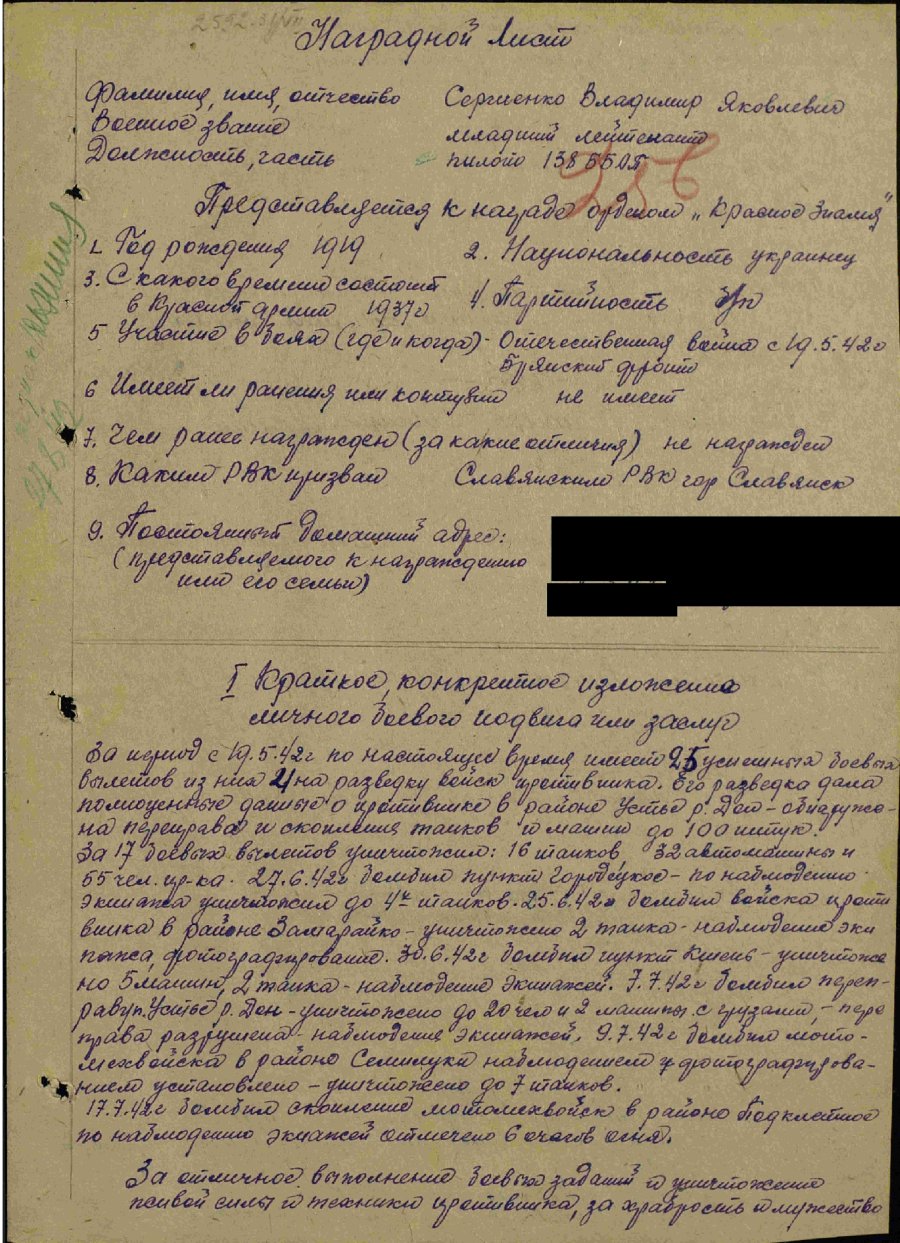 2592
Наградной Лист
Фамилия, имя, отчество Сергиенко Владимир Яковлевич
Военное звание младший лейтенант
Должность, часть пилот 138 ББАП
Представляется к награде орденом „Красное Знамя"
1. Год рождения 1919 2. Национальность украинец
3. С какого времени состоит
в Красной армии 1937г 4. Партийность
5 Участие в боях (где и когда) - Отечественная война с 19.5.42г
Брянский фронт
6 Имеет ли ранения или контузии не имеет
7. Чем ранее награжден (за какие отличия) не награжден
8. Каким РВК призван Славянским РВК гор Славянск
9. Постоянный домашний адрес:
(представляемого к награждению
или его семьи)
I Краткое, конкретное изложение
личного боевого подвига или заслуг
За период с 19.5.42г по настоящее время имеет 25 успешных боевых
вылетов из них 4 на разведку войск противника. Его разведка дала
полноценные данные о противнике в районе Устье р. Дон - обнаруже-
на переправа и скопления танков и машин до 100 штук.
За 17 боевых вылетов уничтожил: 16 танков, 32 автомашины и
55 чел. пр-ка. 27.6.42г бомбил пункт Городецкое - по наблюдению
экипажа уничтожил до 4х танков. 25.6.42г бомбил войска проти
вника в районе Замарайко - уничтожено 2 танка - наблюдение эки
пажа, фотографирование. 30.6.42г бомбил пункт Кшень - уничтоже
но 5 машин, 2 танка - наблюдение экипажей. 7.7.42г бомбил переп-
раву п. Устье р. Дон - уничтожено до 20 чел и 2 машины с грузами - пере
права разрушена - наблюдение экипажей. 9.7.42г бомбил мото-
мехвойска в районе Семилуки наблюдением и фотографирова-
нием установлено - уничтожено до 7 танков.
17.7.42г бомбил скопление мотомехвойск в районе Подклетное
по наблюдению экипажей отмечено 6 очагов огня.
За отличное выполнение боевых заданий и уничтожение
живой силы и техники противника, за храбрость и мужество